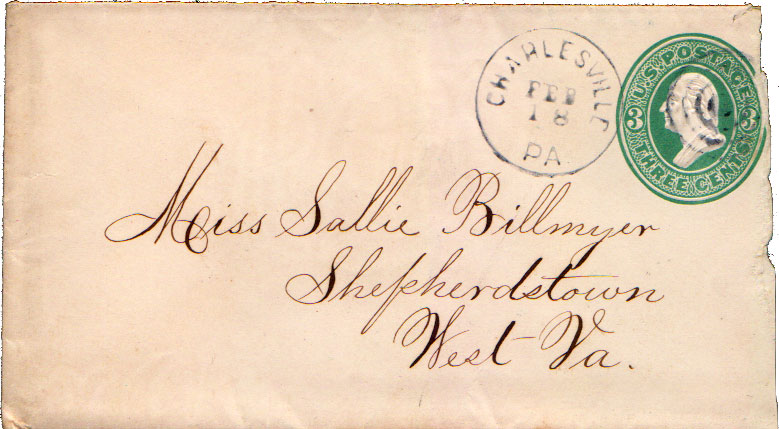 CHARLESVILLE
FEB
18
PA
U.S. POSTAGE
3 3
THREE CENTS
Miss Sallie Billmyer
Shepherdstown
West Va.